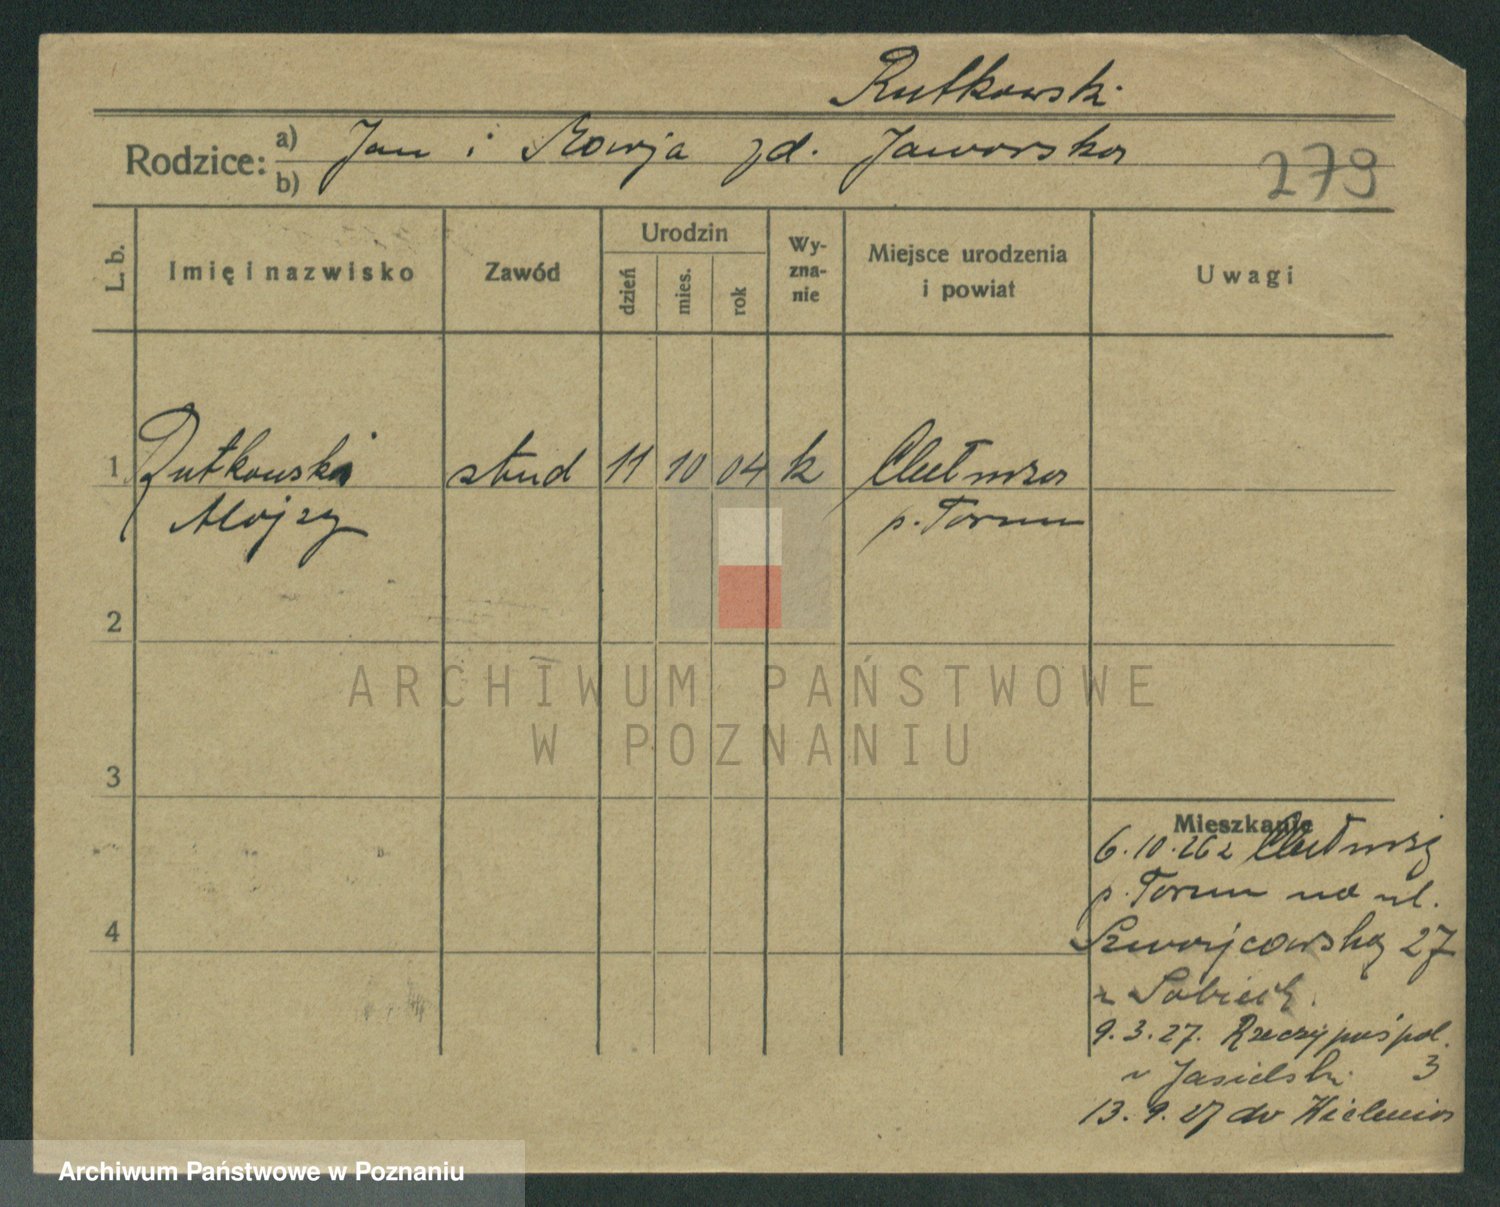 Rutkowski
Rodzice: a) Jan i Marja zd. Jaworska
b)
279
L. b.
Imię i nazwisko
Zawód
Urodzin
dzień
mies.
rok
Wy-
zna-
nie
Miejsce urodzenia
i powiat
Uwagi
1 Rutkowski stud 11 10 04 k Chełmża
Alojzy p. Toruń
2
3
4
Mieszkanie
6.10.26 z Chełmży
p. Toruń na ul.
Szwajcarską 27
9.3.27. Rzeczypospol.
u Jasielski 3
13.9.27 do
ARCHIWUM PAŃSTWOWE
W POZNANIU
Archiwum Państwowe w Poznaniu